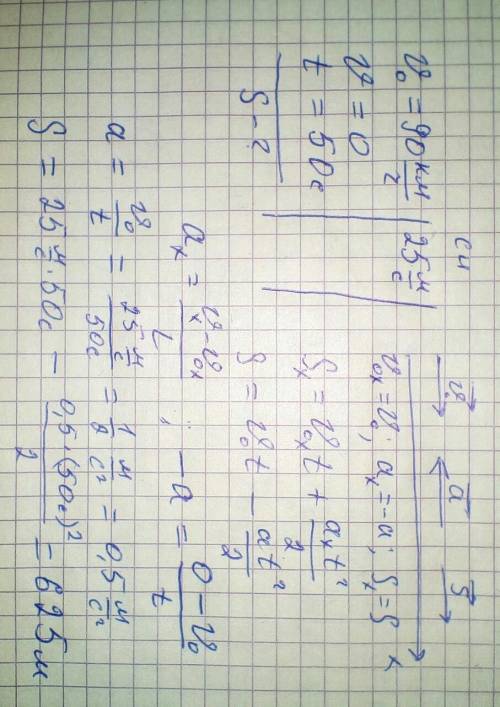 v₀ = 90 км/г | СИ 25 м/с
v = 0
t = 50с
S - ?
v⃗₀ a⃗ S⃗ x
v₀ₓ = v₀; aₓ = -a; Sₓ = S
Sₓ = v₀ₓt + aₓt²/2
S = v₀t - at²/2
aₓ = (vₓ - v₀ₓ)/t; -a = (0 - v₀)/t
a = v₀/t = 25 м/с / 50с = 1/2 м/с² = 0,5 м/с²
S = 25 м/с · 50с - 0,5 · (50с)²/2 = 625 м